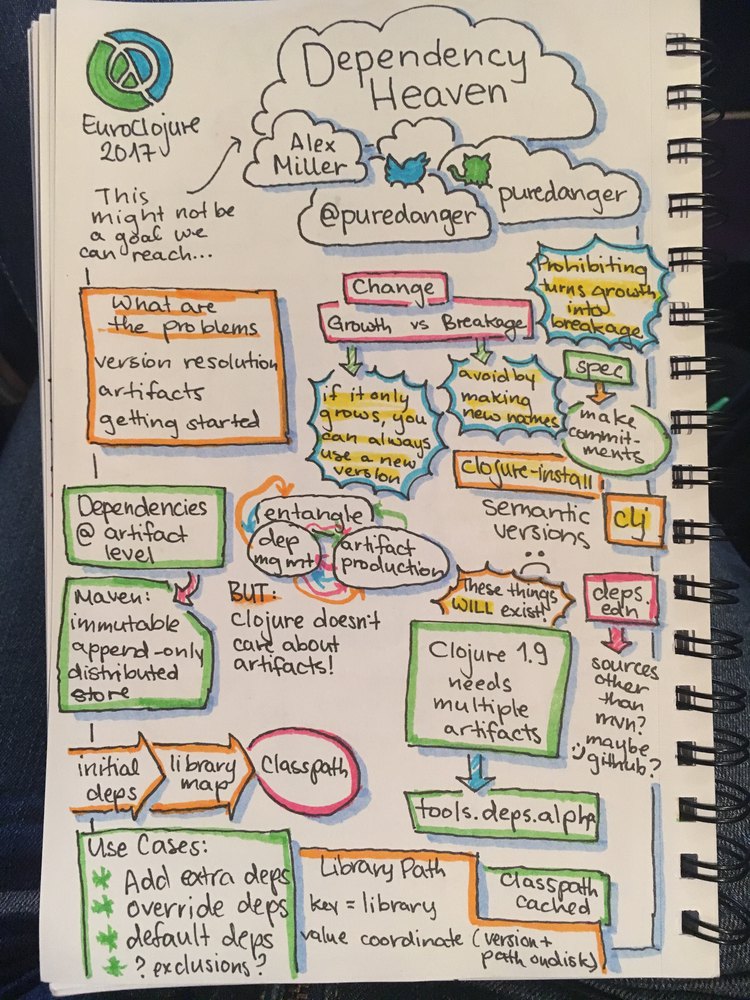 Dependency
Heaven
EuroClojure
2017
Alex
Miller
@puredanger
puredanger
This
might not be
a goal we
can reach...
What are
the problems
version resolution
artifacts
getting started
Change
Growth vs Breakage
if it only
grows, you
can always
use a new
version
avoid by
making
new names
Prohibiting
turns growth
into
breakage
spec
make
commit-
ments
clojure-install
clj
semantic
versions
These things
WILL exist!
deps.
edn
sources
other
than
mvn?
maybe
github?
Dependencies
@ artifact
level
Maven:
immutable
append-only
distributed
store
entangle
dep
mgmt
artifact
production
BUT:
Clojure doesn't
care about
artifacts!
Clojure 1.9
needs
multiple
artifacts
tools.deps.alpha
initial
deps
library
map
Classpath
Use Cases:
* Add extra deps
* override deps
* default deps
* ? exclusions?
Library Path
key = library
value coordinate (version+
path on disk)
Classpath
cached